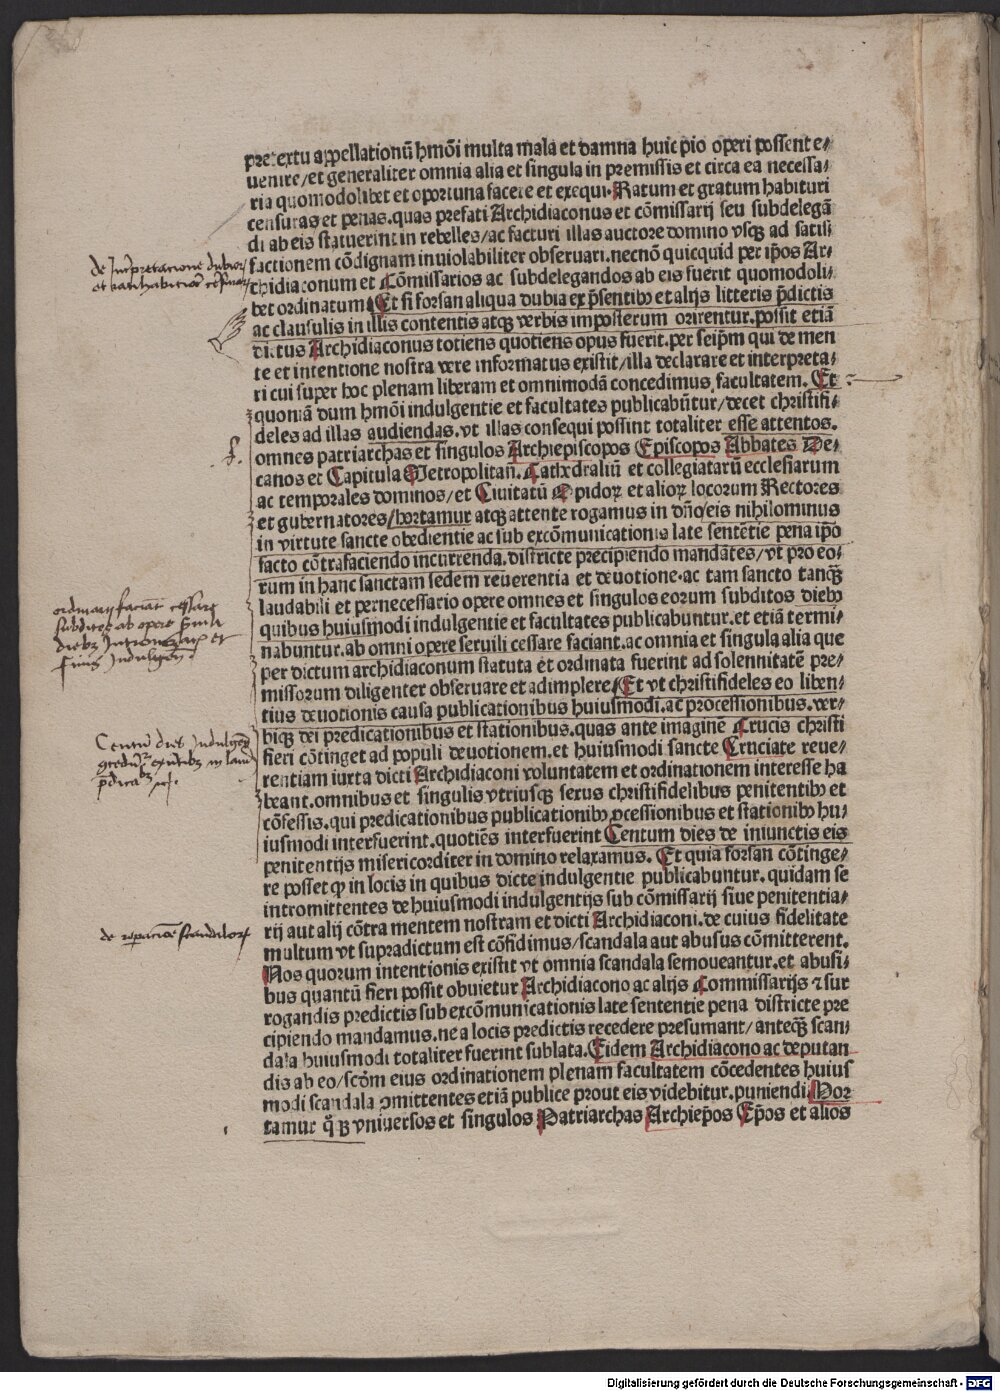 pretextu appellationū hmōi multa mala et damna huic p̄io operi possent e⸗
uenire/et generaliter omnia alia et singula in premissis et circa ea necessa⸗
ria quomodolibet et oportuna facere et exequi. Ratum et gratum habituri
censuras et penas. quas prefati Archidiaconus et cōmissarij seu subdelegā
di ab eis statuerint in rebelles/ac facturi illas auctore domino vsqꝫ ad satis⸗
factionem cōdignam inuiolabiliter obseruari. necnō quicquid per ip̄os Ar⸗
chidiaconum et Cōmissarios ac subdelegandos ab eis fuerit quomodoli⸗
bet ordinatum Et si forsan aliqua dubia ex p̄sentibꝰ et alijs litteris p̄dictis
ac clausulis in illis contentis atqꝫ verbis imposterum orirentur. possit etiā
dictus Archidiaconus totiens quotiens opus fuerit. per seip̄m qui de men
te et intentione nostra vere informatus existit/illa declarare et interpreta⸗
ri cui super hoc plenam liberam et omnimodā concedimus facultatem. Et
quoniā dum hmōi indulgentie et facultates publicabūtur/decet christifi⸗
deles ad illas audiendas. vt illas consequi possint totaliter esse attentos.
omnes patriarchas et singulos Archiepiscopos Episcopos Abbates De⸗
canos et Capitula Metropolitan̄. Cathedraliū et collegiatarū ecclesiarum
ac temporales dominos/et Ciuitatū Opidoꝝ et alioꝝ locorum Rectores
et gubernatores/hortamur atqꝫ attente rogamus in dn̄o/eis nihilominus
in virtute sancte obedientie ac sub excōmunicationis late sentētie pena ip̄o
facto cōtrafaciendo incurrenda. districte precipiendo mandātes/vt pro eo⸗
rum in hanc sanctam sedem reuerentia et deuotione. ac tam sancto tanqꝫ̄
laudabili et pernecessario opere omnes et singulos eorum subditos diebꝰ
quibus huiusmodi indulgentie et facultates publicabuntur. et etiā termi⸗
nabuntur. ab omni opere seruili cessare faciant. ac omnia et singula alia que
per dictum archidiaconum statuta et ordinata fuerint ad solennitatē pre⸗
missorum diligenter obseruare et adimplere Et vt christifideles eo liben⸗
tius deuotionis causa publicationibus huiusmodi. ac processionibus. ver⸗
biqꝫ dei predicationibus et stationibus. quas ante imaginē Crucis christi
fieri cōtinget ad populi deuotionem. et huiusmodi sancte Cruciate reue⸗
rentiam iuxta dicti Archidiaconi voluntatem et ordinationem interesse ha
beant. omnibus et singulis vtriusqꝫ sexus christifidelibus penitentibꝰ et
cōfessis. qui predicationibus publicationibꝰ ꝓcessionibus et stationibꝰ hu⸗
iusmodi interfuerint. quotiēs interfuerint Centum dies de iniunctis eis
penitentijs misericorditer in domino relaxamus. Et quia forsan cōtinge⸗
re posset ꝙ in locis in quibus dicte indulgentie publicabuntur. quidam se
intromittentes de huiusmodi indulgentijs sub cōmissarij siue penitentia⸗
rij aut alij cōtra mentem nostram et dicti Archidiaconi. de cuius fidelitate
multum vt supradictum est cōfidimus/scandala aut abusus cōmitterent.
Nos quorum intentionis existit vt omnia scandala semoueantur. et abusi⸗
bus quantū fieri possit obuietur Archidiacono ac alijs Commissarijs ⁊ sur
rogandis predictis sub excōmunicationis late sententie pena districte pre
cipiendo mandamus. ne a locis predictis recedere presumant/anteqꝫ̄ scan⸗
dala huiusmodi totaliter fuerint sublata. Eidem Archidiacono ac deputan
dis ab eo/scd̄m eius ordinationem plenam facultatem cōcedentes huius
modi scandala ꝯmittentes etiā publice prout eis videbitur. puniendi Hor
tamur vniuersos et singulos Patriarchas Archiep̄os Ep̄os et alios
Digitalisierung gefördert durch die Deutsche Forschungsgemeinschaft - DFG